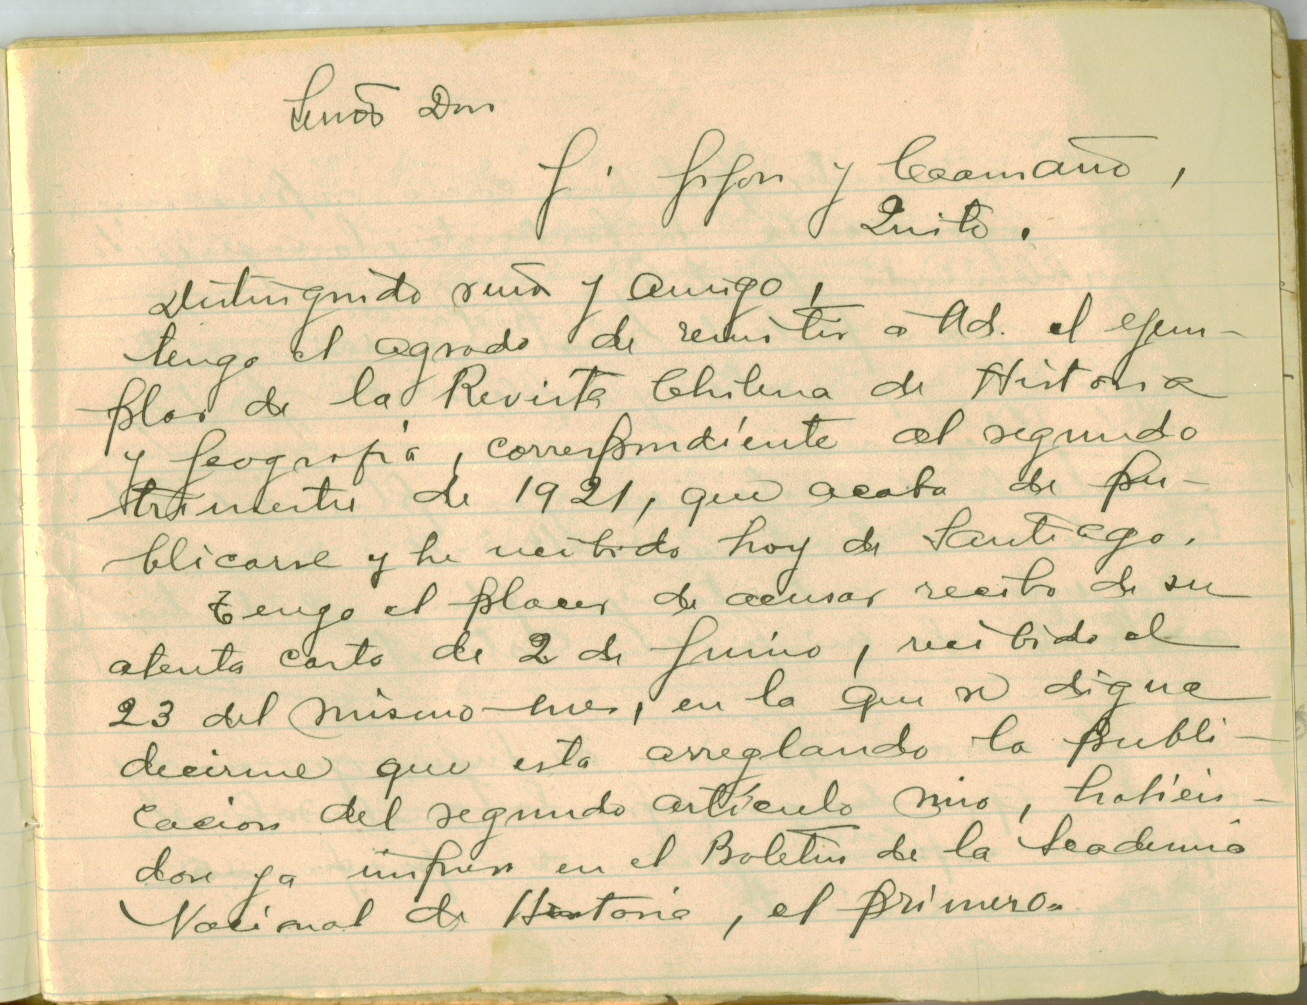 Señor Don
J. Jijon y Caamaño,
Quito.
Distinguido señor y amigo,
tengo el agrado de remitir a Ud. el ejem-
plar de la Revista Chilena de Historia
y Geografía, correspondiente al segundo
trimestre de 1921, que acaba de pu-
blicarse y he recibido hoy de Santiago.
Tengo el placer de acusar recibo de su
atenta carta de 2 de Junio, recibida el
23 del mismo mes, en la que se digna
decirme que esta arreglando la publi-
cacion del segundo artículo mio, habién-
dose ya impreso en el Boletin de la Academia
Nacional de Historia, el primero.